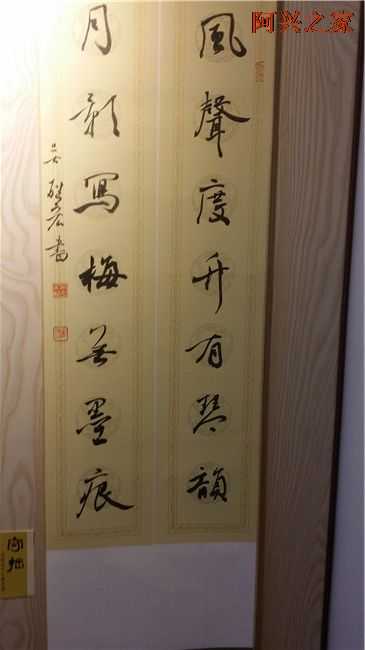 阿兴之家
風聲度竹有琴韻
月影寫梅無墨痕
書
守拙